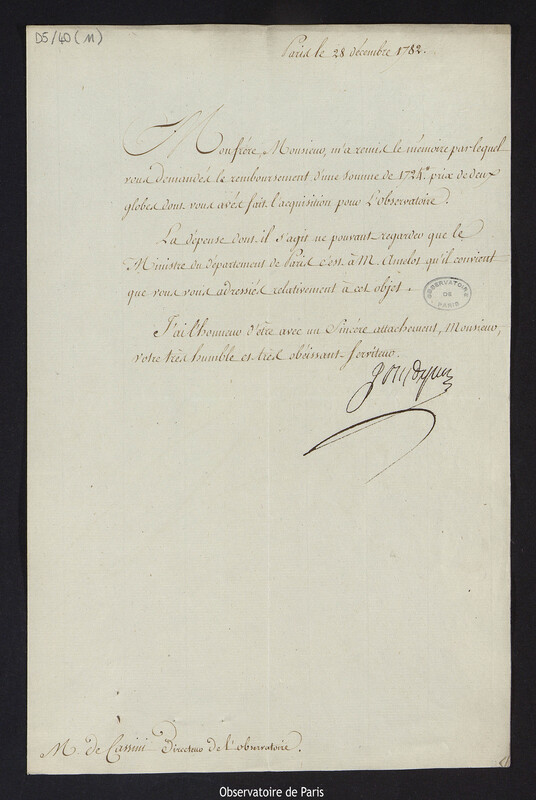 D5/40 (11)
Paris le 28 décembre 1782.
Mon frére, Monsieur, m'a remis le mémoire par lequel
vous demandés le remboursement d'une somme de 1724.# prix de deux
globes dont vous avés fait l'acquisition pour L'Observatoire.
La dépense dont il s'agit ne pouvant regarder que le
Ministre du département de Paris c'est à M. Amelot qu'il convient
que vous vous adressiés relativement à cet objet.
OBSERVATOIRE
DE
PARIS
J'ai l'honneur d'être avec un Sincére attachement, Monsieur,
votre très humble et très obéissant Serviteur.
M. de Cassini Directeur de l'observatoire.
Observatoire de Paris